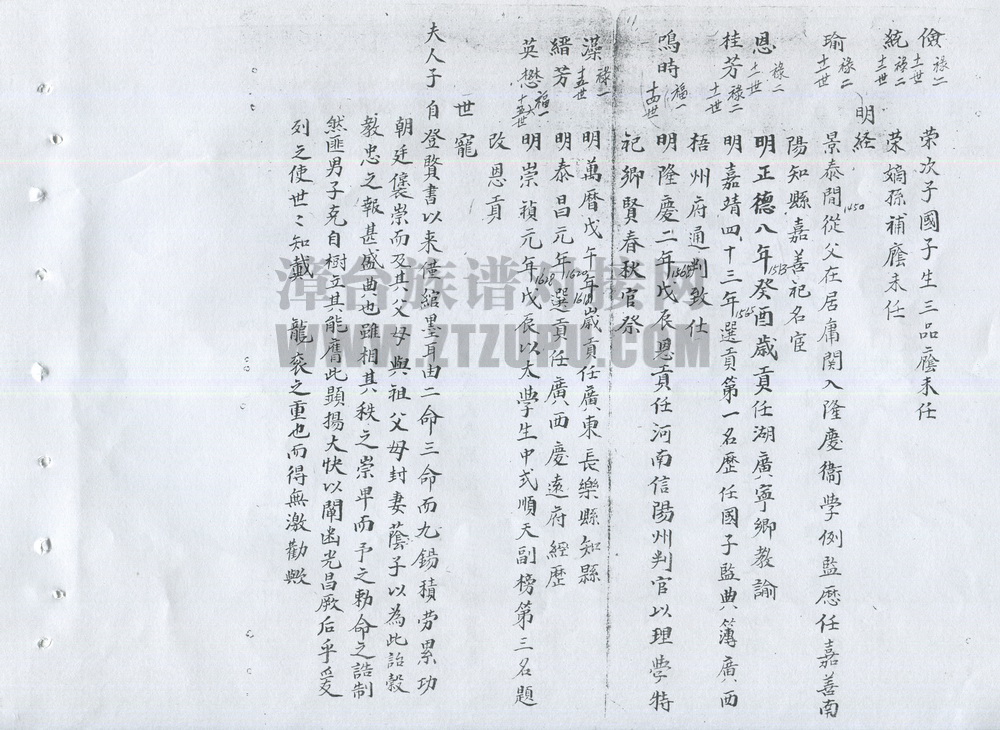 儉 祿二 十一世 荣次子國子生三品廕未任
統 祿二 十二世 荣嫡孫補廕未任
明経
瑜 祿二 十一世 景泰間從父在居庸関入隆慶衞學例監歷任嘉善南 1450
陽知縣嘉善祀名宦
恩 祿二 十一世 明正德八年癸酉歲貢任湖廣寧鄉教諭 1513
桂芳 祿二 十一世 明嘉靖四十三年選貢第一名歷任國子監典簿廣西 1565
梧州府通判致仕
鳴時 福一 十四世 明隆慶二年戊辰恩貢任河南信陽州判官以理學特 1568
祀鄉賢春秋官祭
澡 祿一 十五世 明萬曆戊午年歲貢任廣東長樂縣知縣 1618
縉芳 明泰昌元年選貢任廣西慶遠府經歷 1620
英懋 福一 十六世 明崇禎元年戊辰以太學生中式順天副榜第三名題 1618
改恩貢
世寵
夫人子自登賢書以来僅綰墨耳由二命三命而九錫積劳累功
朝廷褒崇而及其父母與祖父母封妻蔭子以為此詒穀
教忠之報甚盛典也雖相其秩之崇卑而予之勅命之誥制
然匪男子克自樹立其能膺此顕揚大快以闡幽光昌厥后乎爰
列之使世〻知戴 龍衮之重也而得無激勸歟
漳台族谱对接网
WWW.ZTZUPU.COM